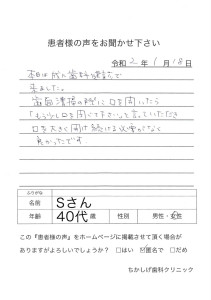 患者様の声をお聞かせ下さい
令和2年1月18日
本日は成人歯科健診で
来ました。
歯面清掃の時に口を開いたら
「もう少し口を閉じて下さい」って言っていただき
口を大きく開け続ける必要がなく
良かったです。
ふりがな
名前 Sさん
年齢 40代 歳 性別 男性・女性
この『患者様の声』をホームページに掲載させて頂く場合が
ありますがよろしいでしょうか？ □はい ☑匿名で □だめ
ちかしげ歯科クリニック